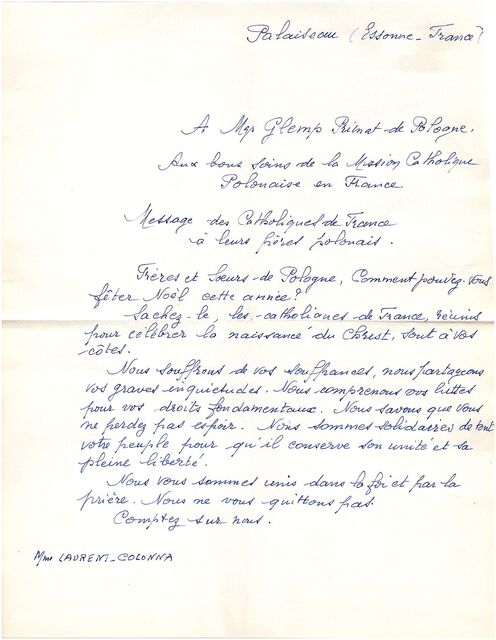 Palaiseau (Essonne-France)
A Mgr Glemp Primat de Pologne.
Aux bons soins de la Mission Catholique
Polonaise en France
Message des Catholiques de France
à leurs frères polonais.
Frères et Sœurs de Pologne, Comment pouvez-vous
fêter Noël cette année?
Sachez-le, les catholiques de France, réunis
pour célébrer la naissance du Christ, sont à vos
côtés.
Nous souffrons de vos souffrances, nous partageons
vos graves inquiétudes. Nous comprenons vos luttes
pour vos droits fondamentaux. Nous savons que vous
ne perdez pas espoir. Nous sommes solidaires de tout
votre peuple pour qu'il conserve son unité et sa
pleine liberté.
Nous vous sommes unis dans la foi et par la
prière. Nous ne vous quittons pas.
Comptez sur nous.
Mme LAURENT-COLONNA